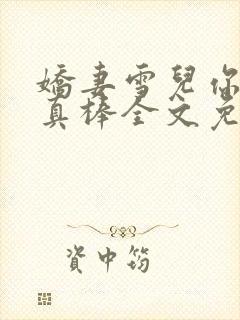 嬌妻雪兒你
真棒全文免
資中筠